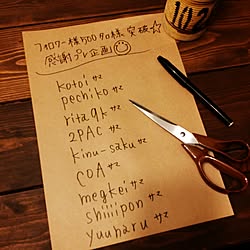 フォロワー様500名様突破☆
感謝プレ企画
kotoi サマ
pechiko サマ
ritagk サマ
2PAC サマ
kinu-saku サマ
COA サマ
megkei サマ
shiiiipon サマ
yuuharu サマ
102